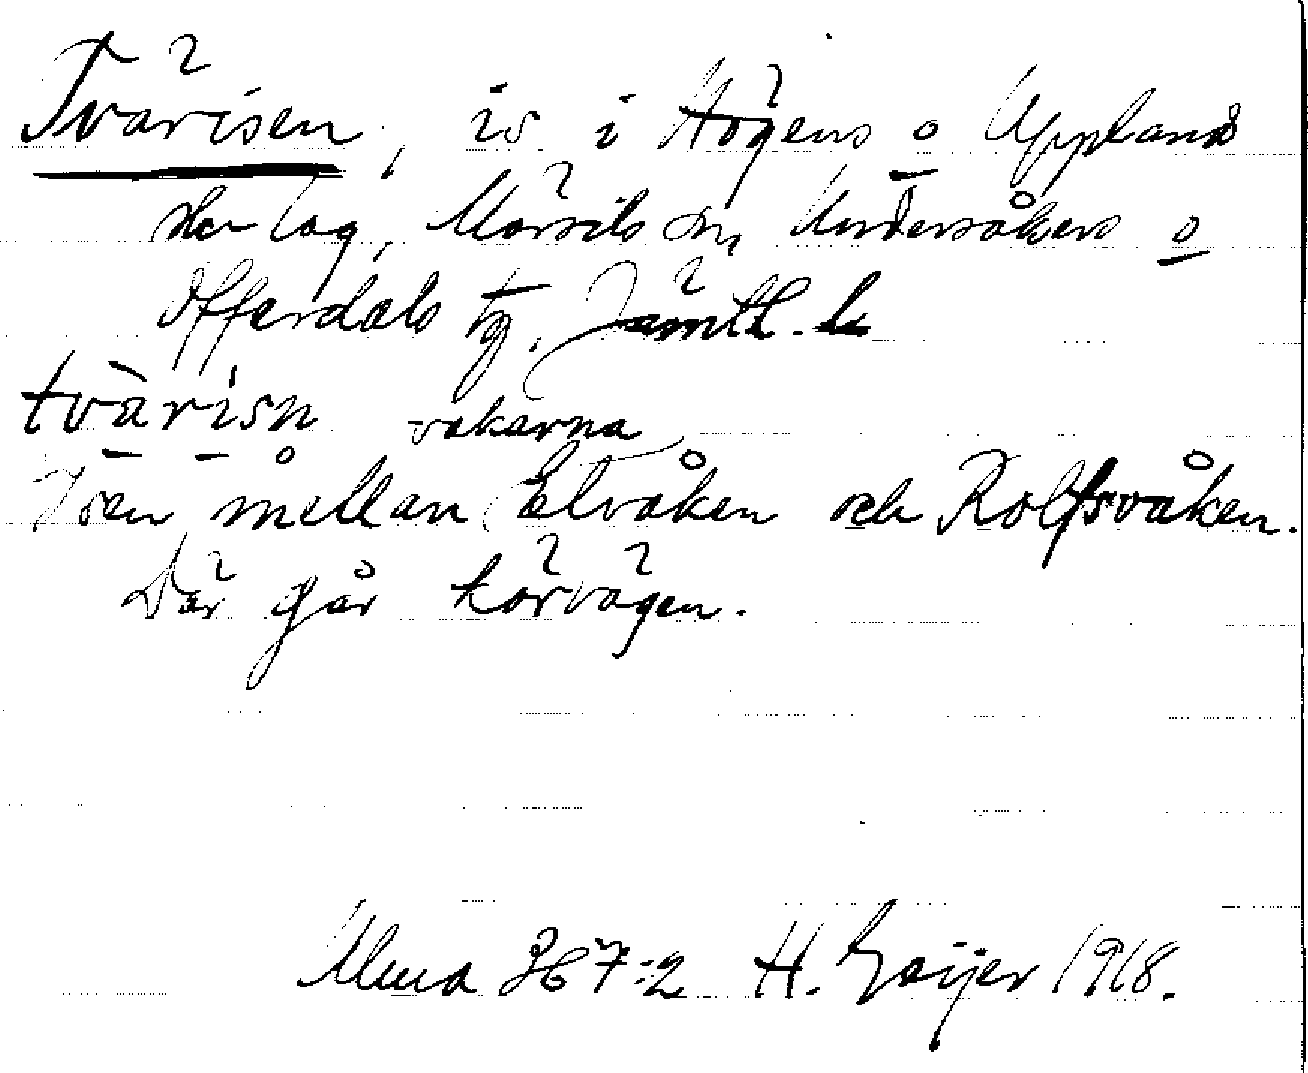 Tvärisen, is i Högens o Uppland
skor lag, Mörsils sn, Undersåkers o
Offerdals tg. Jämtl. l.
tvàrisn vakarna
Isen mellan Elvåken och Rolfsvåken.
Där går körvägen.
Ulma 367:2 H. Geijer 1918.